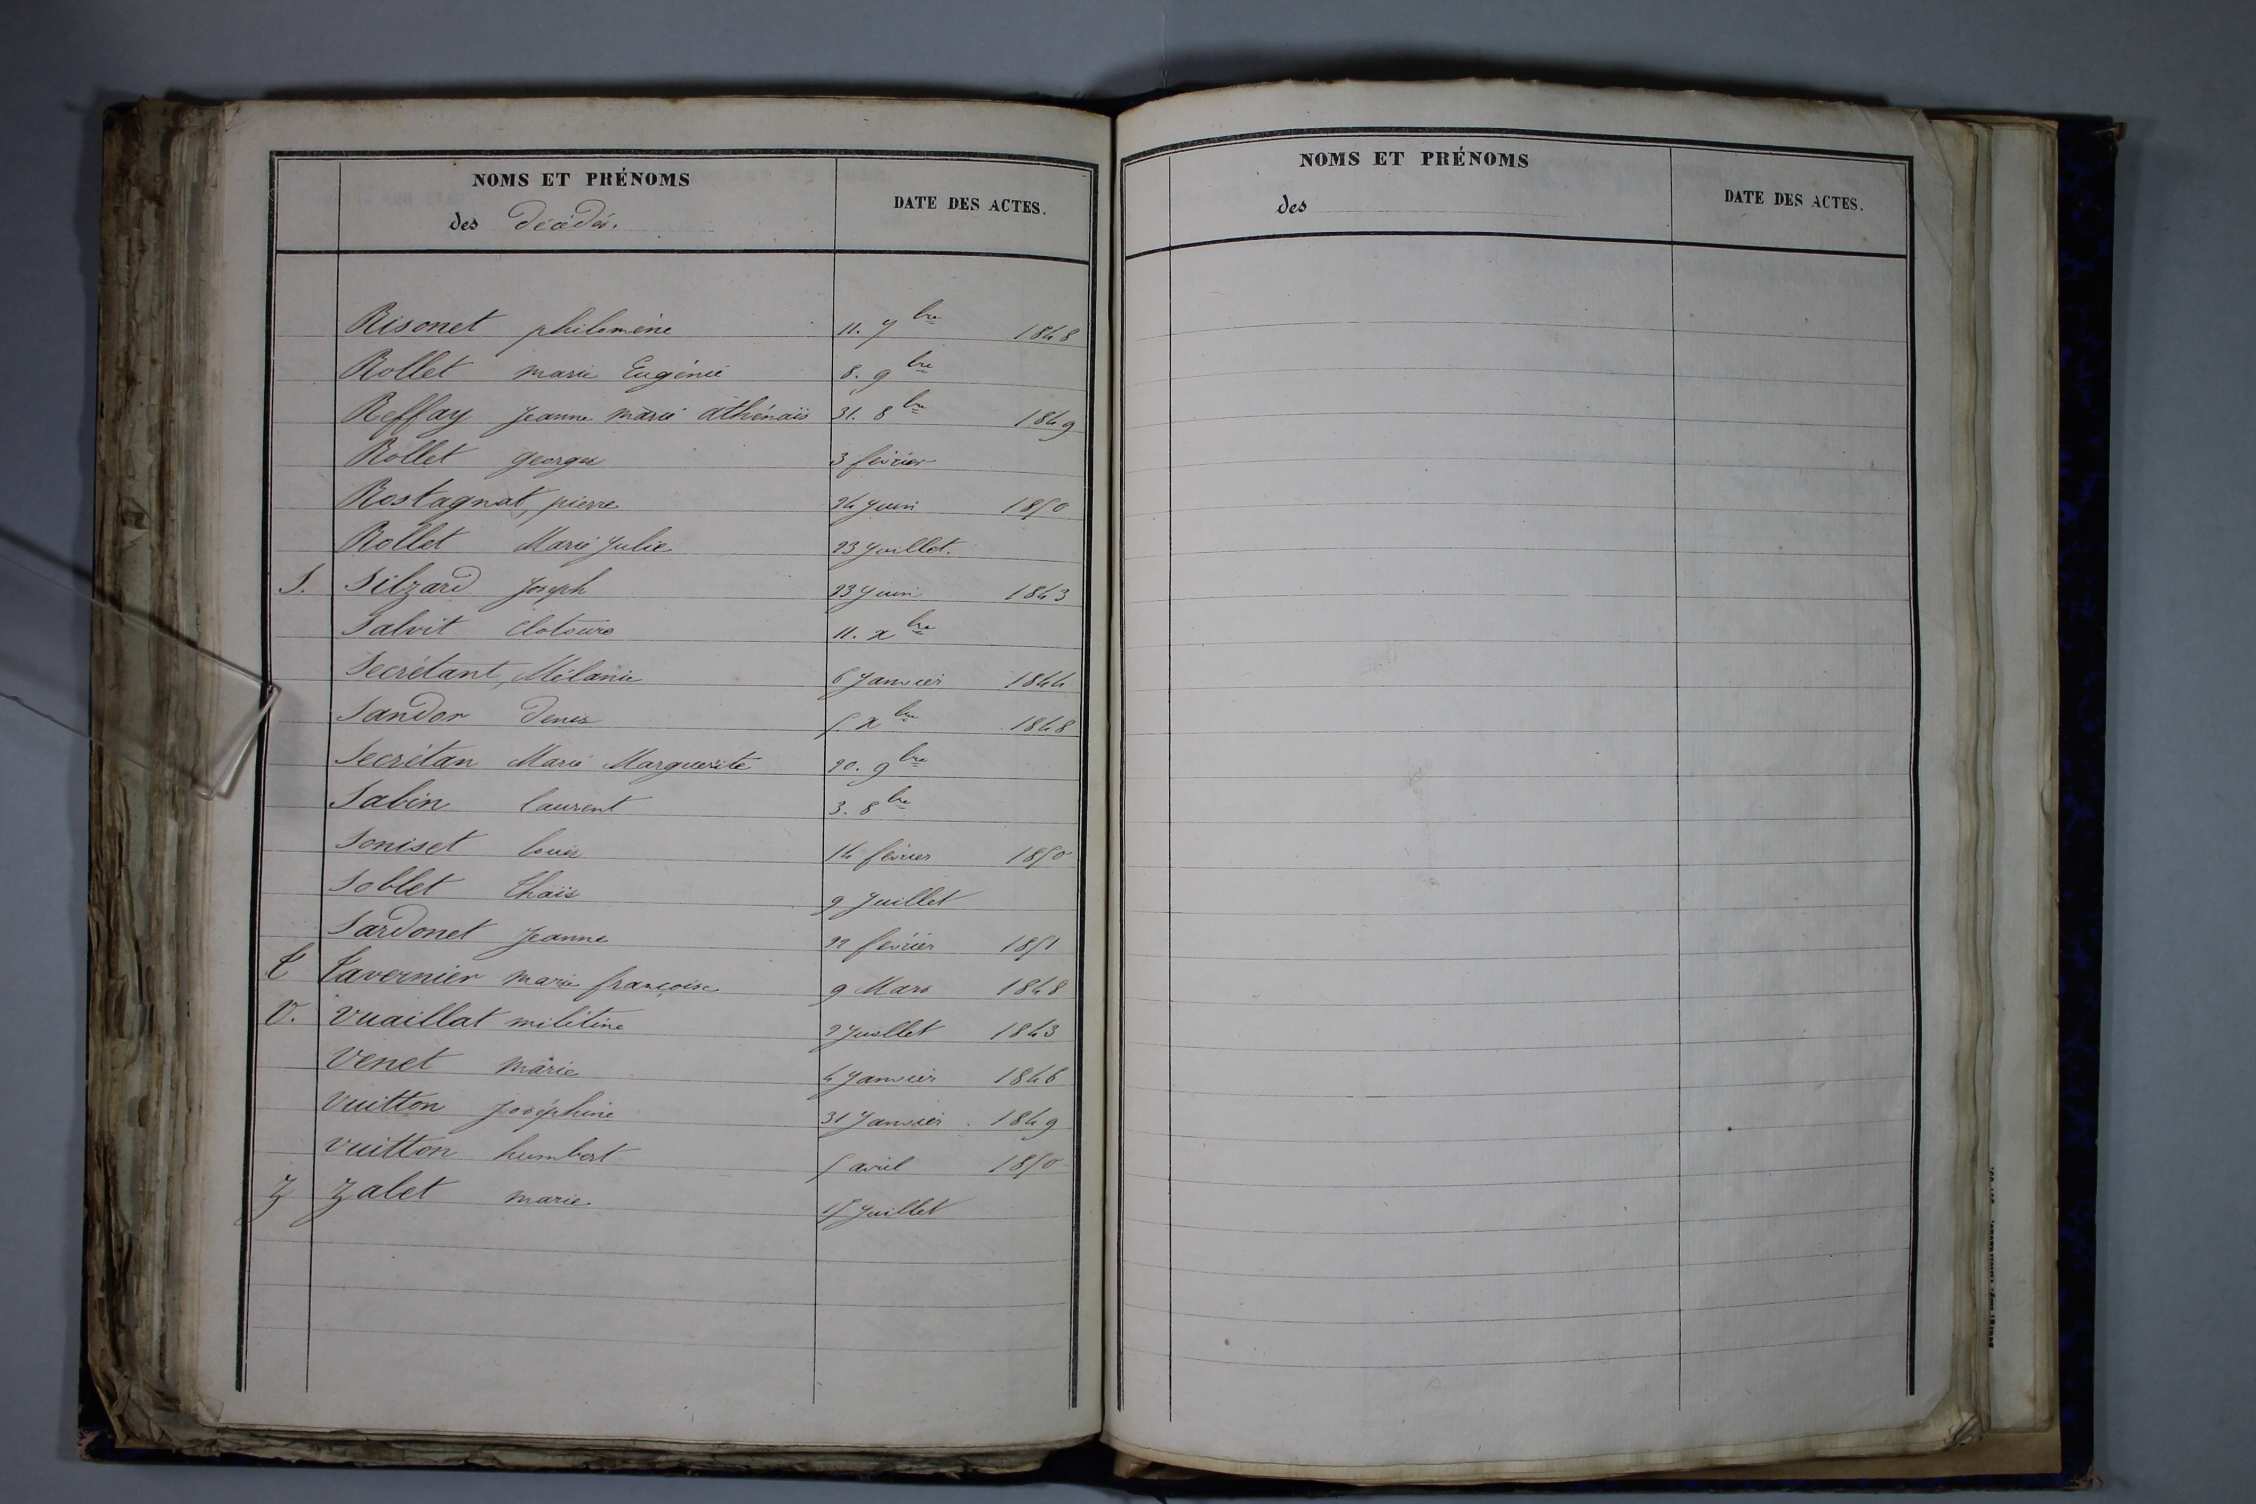 NOMS ET PRÉNOMS
des Décédés.
DATE DES ACTES.
Risonet philomène 11. 7bre 1848
Rollet marie Eugénie 8. 9bre
Reffay Jeanne marie athénaïs 31. 8bre 1849
Rollet georges 3 février
Rostagnat, pierre 24 juin 1850
Rollet Marie Julie 23 Juillet.
S. Silzard Joseph 23 juin 1843
Salvit 11. xbre
Secrétant, Mélanie 6 Janvier 1844
Sandor Denis 5. xbre 1848
Secrétan Marie Marguerite 20. 9bre
Sabin laurent 3. 8bre
Soniset louis 14 février 1850
Soblet thaïs 9 Juillet
Sardonet Jeanne 22 février 1851
T Tavernier marie françoise 9 Mars 1848
V. Vuaillat militine 2 Juillet 1843
Venet marie 4 Janvier 1846
Vuitton Joséphine 31 Janvier 1849
Vuitton humbert 5 avril 1850
Z Zalet marie 15 Juillet
NOMS ET PRÉNOMS
des
DATE DES ACTES.